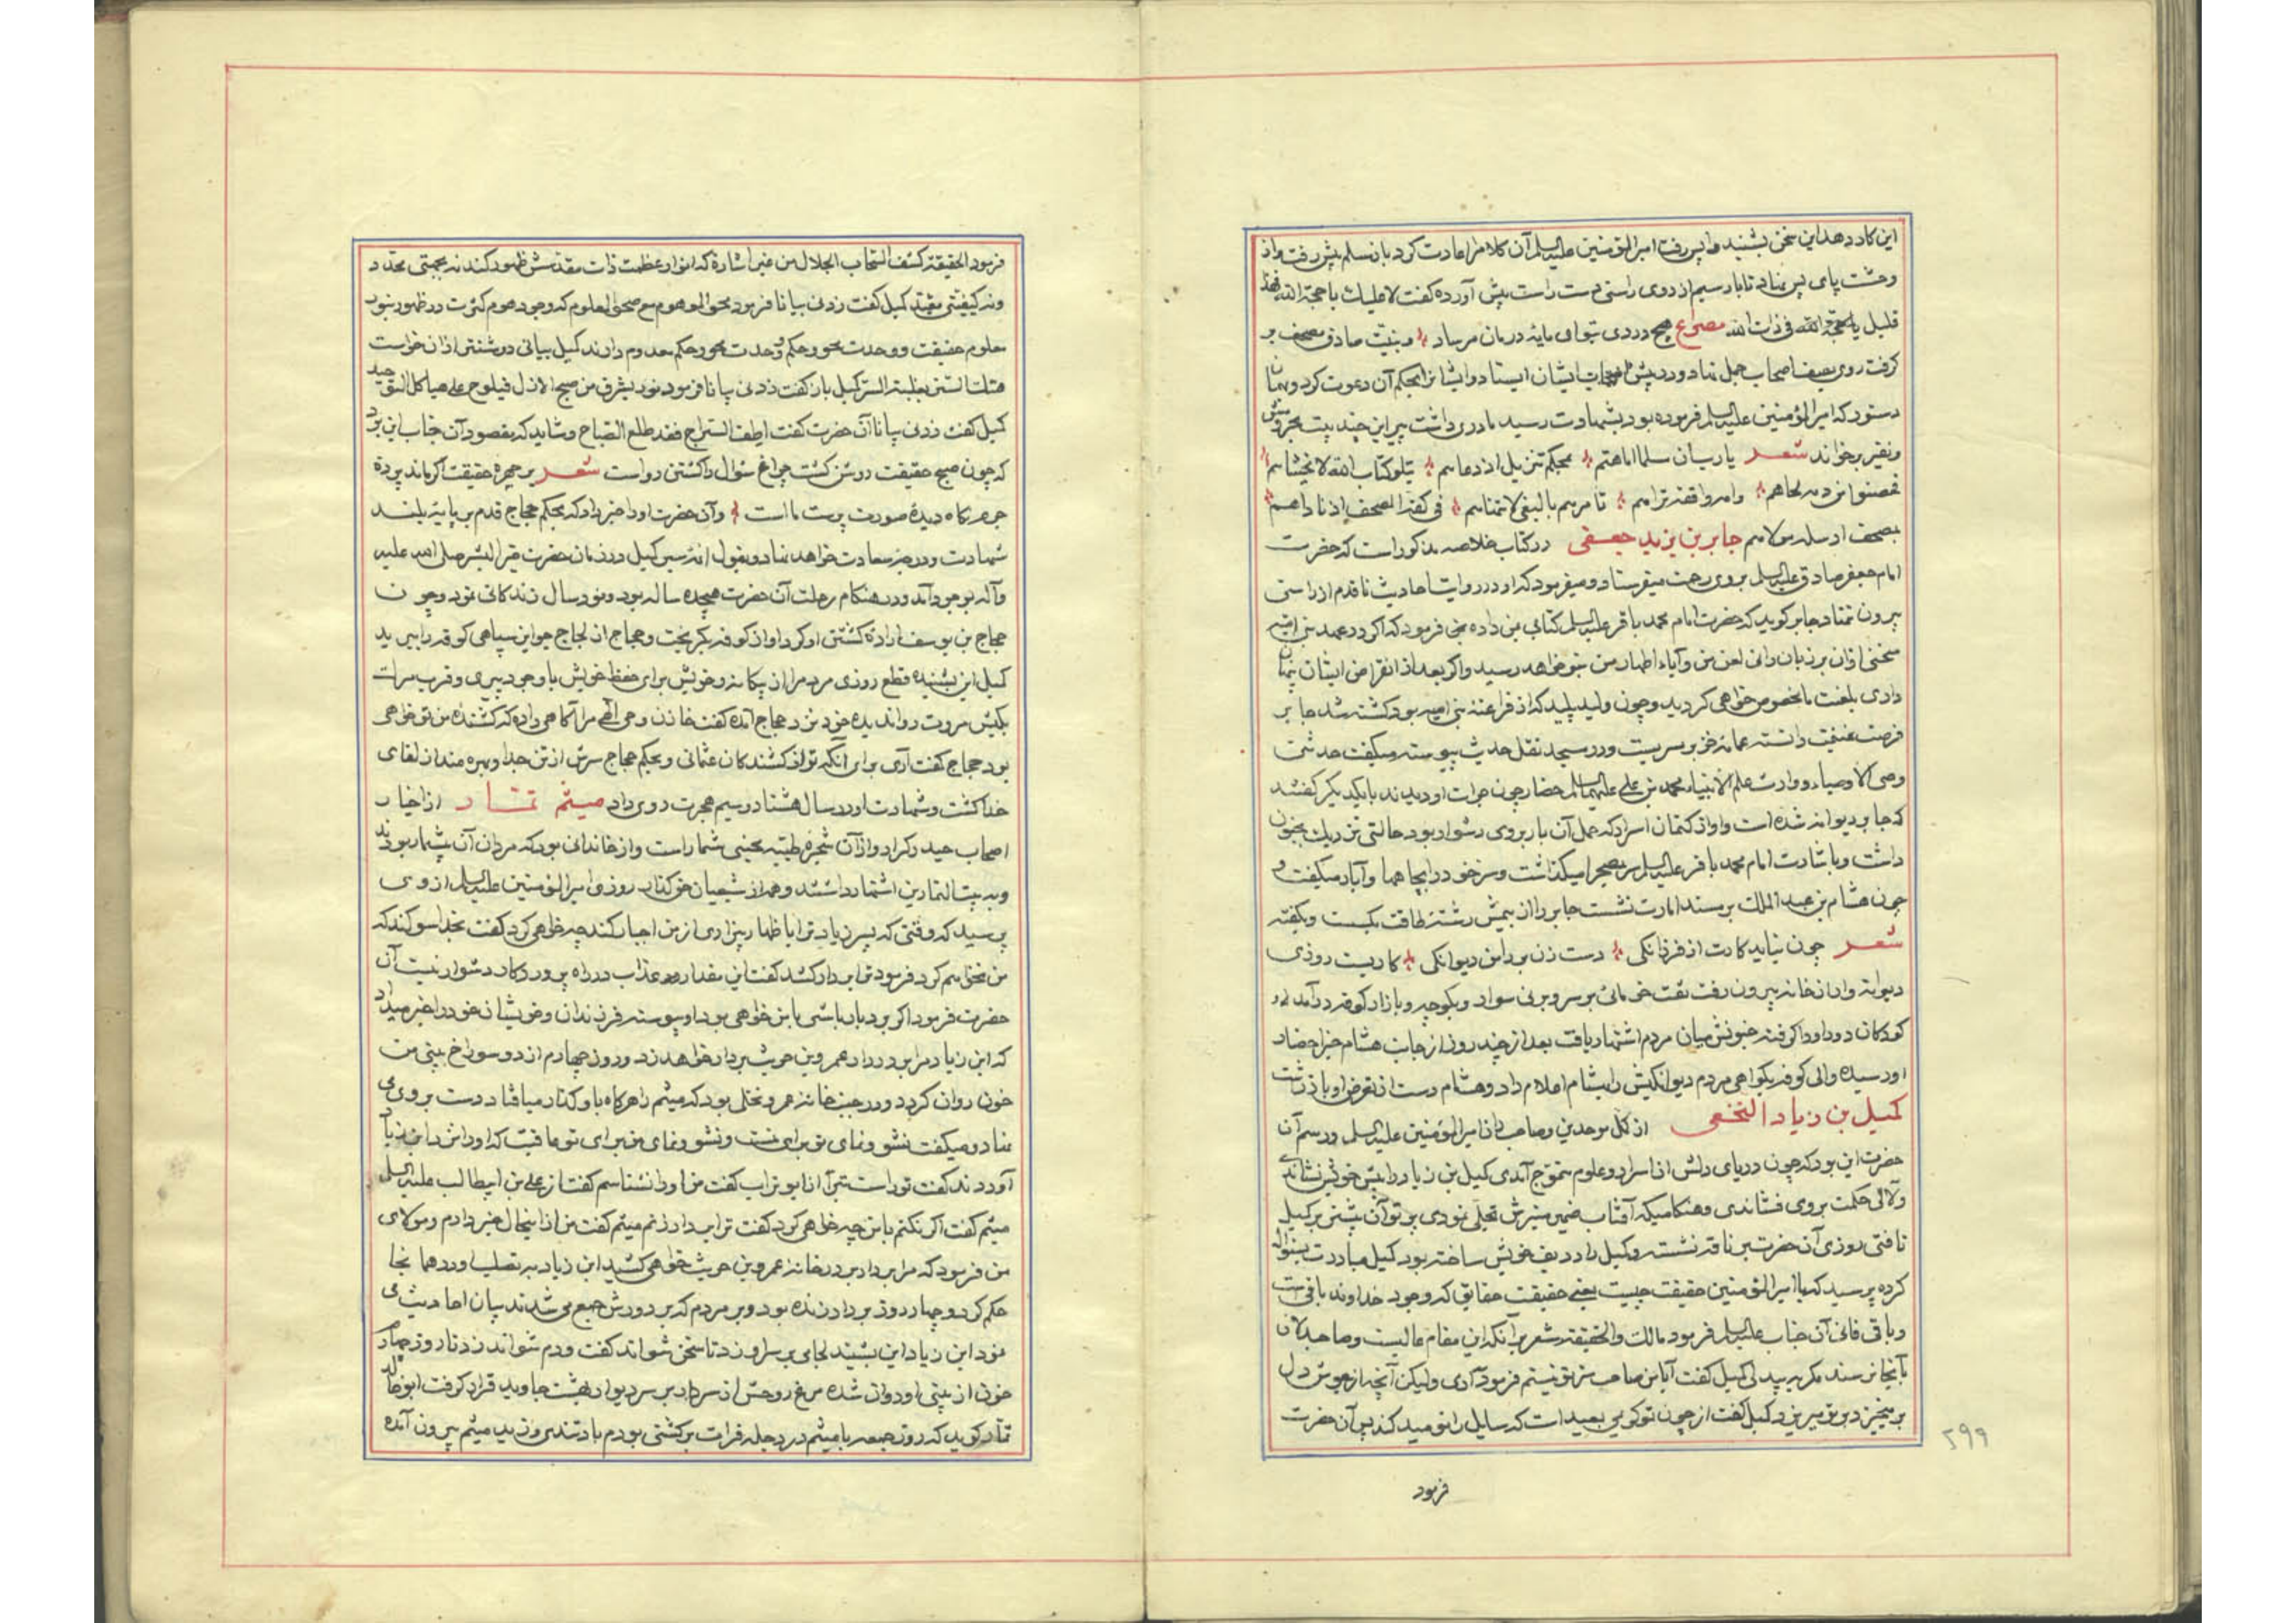 این کار دهد این سخن بشنید واپس رفت امیرالمؤمنین علیه‌السلم آن کلام را اعادت کرد باز مسلم پیش رفت و از
وحشت پای پس نهاد تا بار سیم از روی راستی دست راست پیش آورده گفت لا علیک یا حجة الله فهذا
قلیل یا حجة الله فی ذات الله مصراع هیچ دردی بتو ای مایه درمان مرساد و بنیت صادق مصحف بر
گرفت روی بصف اصحاب جمل نهاد و در پیش ایشان ایستاد و ایشان را بحکم آن دعوت کرد و بهمان
دستور که امیرالمؤمنین علیه‌السلم فرموده بود بشهادت رسید مادری داشت پیر این چند بیت بخروش
و نفیر برخواند شعر یا رب ان مسلما اتاهم بمحکم تنزیل اذ دعاهم یتلو کتاب الله لا یخشاهم
فخضبوا من دمه لحاهم وامه واقفة تراهم تأمرهم بالبغی لا تنهاهم فی کفه المصحف اذ ناداهم
بمصحف ارسله مولاهم جابر بن یزید جعفی در کتاب خلاصه مذکور است که حضرت
امام جعفر صادق علیه‌السلم بروی رحمت میفرستاد و میفرمود که او در روایت احادیث ما قدم از راستی
بیرون ننهاد جابر گوید که حضرت امام محمد باقر علیه‌السلم کتابی بمن داده می فرمود که اگر در عهد بنی امیه
سخنی از آن بر زبان رانی لعن من و آباء اطهار من بتو خواهد رسید و اگر بعد از انقراض ایشان پنهان
داری بلعنت ما مخصوص خواهی گردید و چون ولید پلید که از فراعنه بنی امیه بود کشته شد جابر
فرصت غنیمت دانسته عمامه خز بر سر بست و در مسجد نقل حدیث پیوسته میگفت حدثنی
وصی الاوصیاء و وارث علم الانبیاء محمد بن علی علیهماالسلم حضار چون جرأت او دیدند با یکدیگر گفتند
که جابر دیوانه شده است و او از کتمان اسرار که حمل آن بار بر وی دشوار بود حالتی نزدیک بجنون
داشت و باشارت امام محمد باقر علیه‌السلم سر بصحرا میگذاشت و سر خود در آنجاها و آبار میگفت و
چون هشام بن عبد الملک بر مسند امارت نشست جابر را از بیمش رشته طاقت بگسست و بگفته
شعر چون نیاید کارت از فرزانگی دست زن بر دامن دیوانگی کاربست روزی
دیوانه وار از خانه بیرون رفت بر سر و بر نی سوار و بکوچه و بازار کوفه درآمد
کودکان دور او را گرفته جنونش میان مردم اشتهار یافت بعد از چند روز از جانب هشام خبر احضار
او رسیده والی کوفه بگواهی مردم دیوانگیش را بهشام اعلام داد و هشام دست از تعرض او باز داشت
کمیل بن زیاد النخعی از کل موحدین و صاحب راز امیرالمؤمنین علیه‌السلم و رسم آن
حضرت این بود که چون دریای دلش از اسرار و علوم بتموج آمدی کمیل بن زیاد را پیش خویش نشاندی
و لآلی حکمت بروی فشاندی و هنگامیکه آفتاب ضمیر منیرش تجلی نمودی پرتو آن بیشتر بر کمیل
تافتی روزی آن حضرت بر ناقه نشسته و کمیل را در ردیف خویش ساخته بود کمیل مبادرت بسئواله
کرده پرسید که یا امیرالمؤمنین حقیقت چیست یعنی حقیقت حقایق که وجود خداوند باقیست
و باقی فانی آن جناب علیه‌السلم فرمود مالک والحقیقة مشعر بر آنکه این مقام عالیست و صاحبدلان
بآنجا رسند مگر به بیدلی کمیل گفت آیا من صاحب سر تو نیستم فرمود آری ولیکن آنچه از جوش دل
بر میخیزد بر تو میریزد کمیل گفت از چون تو کریمی بعید است که سایل را نومید کند پس آن حضرت
فرمود
۲۹۹
فرمود الحقیقة کشف السحاب الجلال من غیر اشاره که انوار عظمت ذات مقدسش ظهور کند نه بجهتی محدد
و نه کیفیتی مقید کمیل گفت زدنی بیانا فرمود محو الموهوم مع صحو المعلوم که وجود موهوم کثرت در ظهور نور
معلوم حقیقت و وحدت محو و حکم وحدت محو در حکم معدوم دارند کمیل بیانی روشنتر از آن خواست
هتک الستر بغلبة السر کمیل باز گفت زدنی بیانا فرمود نور یشرق من صبح الازل فیلوح علی هیاکل التوحید
کمیل گفت زدنی بیانا آن حضرت گفت اطف السراج فقد طلع الصباح و شاید که مقصود آن جناب این بود
که چون صبح حقیقت روشن گشت چراغ سئوال را کشتن رواست شعر بر چهره حقیقت اگر ماند پرده
جرم نگاه دیده صورت پرست ماست و آن حضرت او را خبر داد که بحکم حجاج قدم بر پایه بلند
شهادت و در جنت سعادت خواهد نهاد و بقول ائمه سیر کمیل در زمان حضرت خیر البشر صلی الله علیه
و آله بوجود آمد و در هنگام رحلت آن حضرت هیجده ساله بود و نود سال زندگانی نمود و چون
حجاج بن یوسف اراده کشتن او کرد او از کوفه بگریخت و حجاج از لجاج جو این سپاهی کوفه را ببرید
کمیل این بشنیده قطع روزی مردم را از بیگانه و خویش برای حفظ خویش با وجود پیری و قرب مرگ
بکیش مروت روا ندیده خود نزد حجاج آمده گفت خازن وحی الهی مرا آگاهی داده که کشنده من تو خواهی
بود حجاج گفت آری برای آنکه تو از کشندگان عثمانی و بحکم حجاج سرش از تن جدا و بهره مند از لقای
خدا گشت و شهادت او در سال هشتاد و سیم هجرت روی داد میثم تمار از اخیار
اصحاب حیدر کرار و از آن شجره طیبه بجنبی شمار است و از خاندانی بود که مردان آن بیشمار بودند
و به بیت التمارین اشتهار داشتند و همه از شیعیان روزی امیرالمؤمنین علیه‌السلم از وی
پرسید که وقتی که پسر زیاد ترا باظهار بیزاری از من اجبار کند چه خواهی کرد گفت بخدا سوگند که
من نخواهم کرد فرمود ترا بر دار کشد گفت این مقدار عذاب در راه پروردگار دشوار نیست آن
حضرت فرمود اگر بردبار باشی با من خواهی بود او پیوسته فرزندان و خویشان خود را خبر میداد
که ابن زیاد مرا بر در دار عمرو بن حریث بر دار خواهد زد و روز چهارم از دو سوراخ بینی من
خون روان گردد و در جنب خانه عمرو نخلی بود که میثم را هرگاه با او گذار میافتاد دست بر وی
نهاد و میگفت نشو و نمای تو برای منست و نشو و نمای من برای تو عاقبت که او را نزد ابن زیاد
آوردند گفت تو راست تبرا از ابو تراب گفت من او را نشناسم گفت از علی بن ابیطالب علیه‌السلم
میثم گفت اگر نکنم با من چه خواهی کرد گفت ترا بدار زنم میثم گفت من از اینحال خبر دارم و مولای
من فرمود که مرا بر دار بر در خانه عمرو بن حریث خواهی کشید ابن زیاد به تصلیب او در همانجا
حکم کرد و چهار روز بر دار زنده بود و بر مردم که بر دورش جمع می شدند بیان احادیث می
نمود ابن زیاد این بشنید لجامی بر سر او زد تا سخن نتواند گفت و دم نتواند زد تا روز چهارم
خون از بینی او روان شده مرغ روحش از سر دار بر سر دیوار بهشت جاوید قرار گرفت ابو خالد
تمار گوید که روز جمعه با میثم در دجله فرات بر کشتی بودم باد تندی وزید میثم بیرون آمده